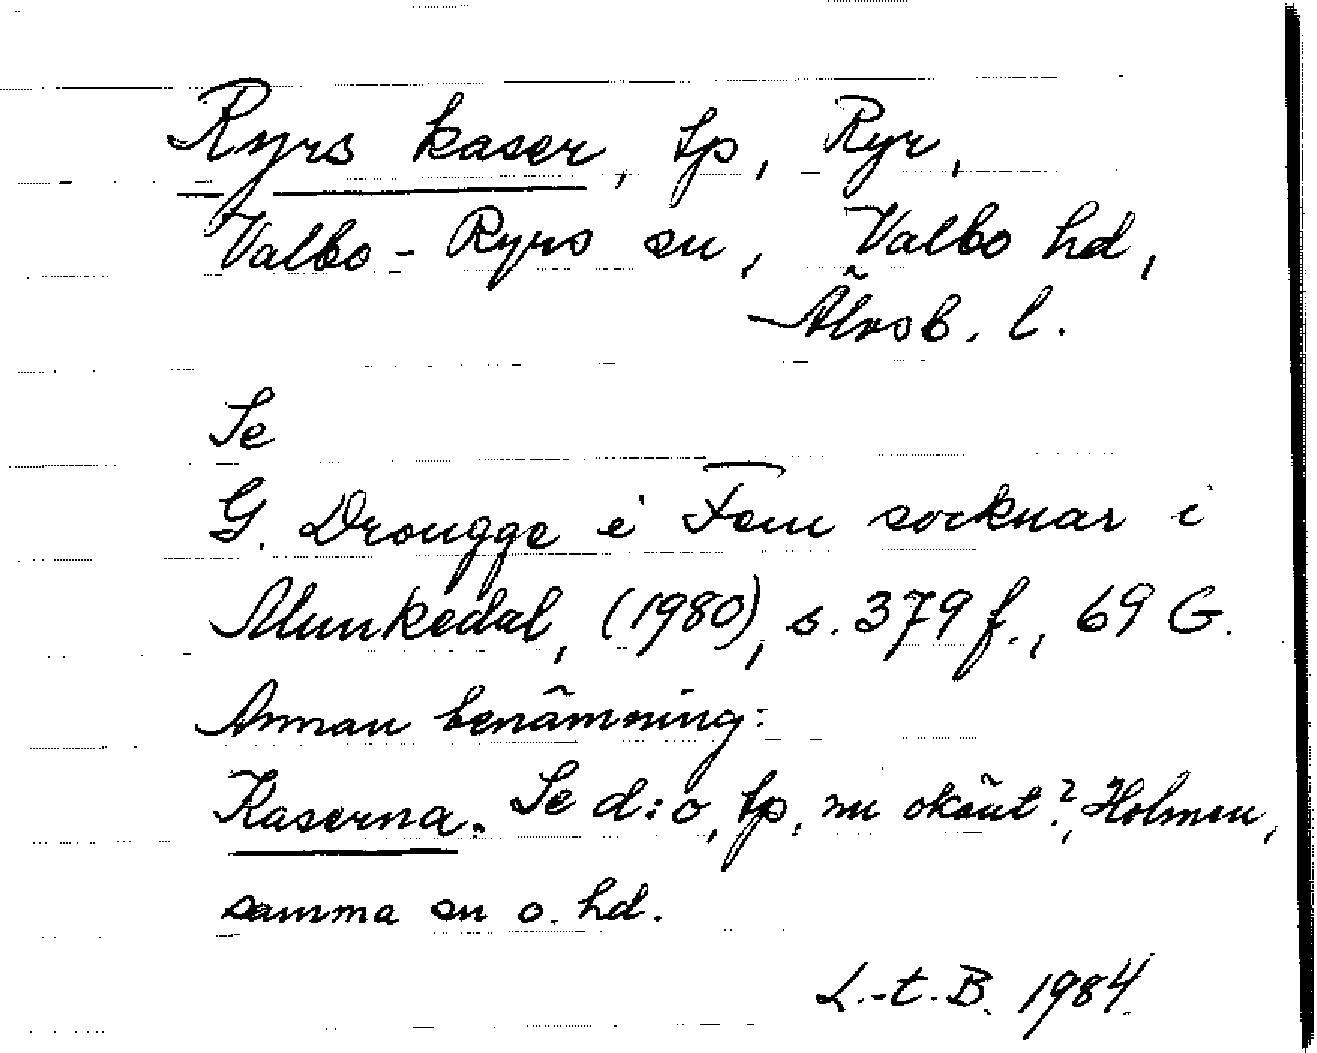 Ryrs kaser, tp, Ryr,
Valbo-Ryrs sn, Valbo hd,
Älvsb. l.
Se
G. Drougge i Fem socknar i
Munkedal, (1980), s. 379 f., 69 G.
Annan benämning:
Kaserna. Se d:o, tp, nu okänt?, Holmen,
samma sn o. hd.
L.-t. B. 1984.